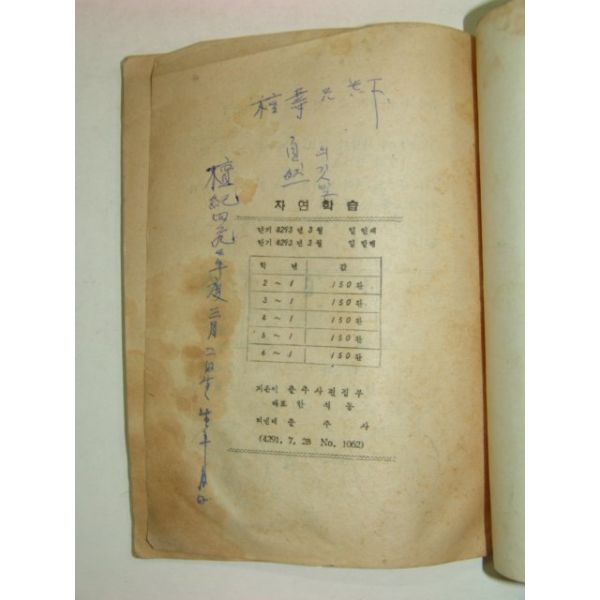 自然
의 깃발
자 연 학 습
단기 4293 년 3 월 일 인쇄
단기 4293 년 3 월 일 발행
학 년 값
2 ~ 1 150 환
3 ~ 1 150 환
4 ~ 1 150 환
5 ~ 1 150 환
6 ~ 1 150 환
지은이 출 주 사 편 집 부
대표 한 석 동
펴낸데 출 주 사
(4291. 7. 28 No. 1062)
檀紀四二九
年度三月二日
生年月日